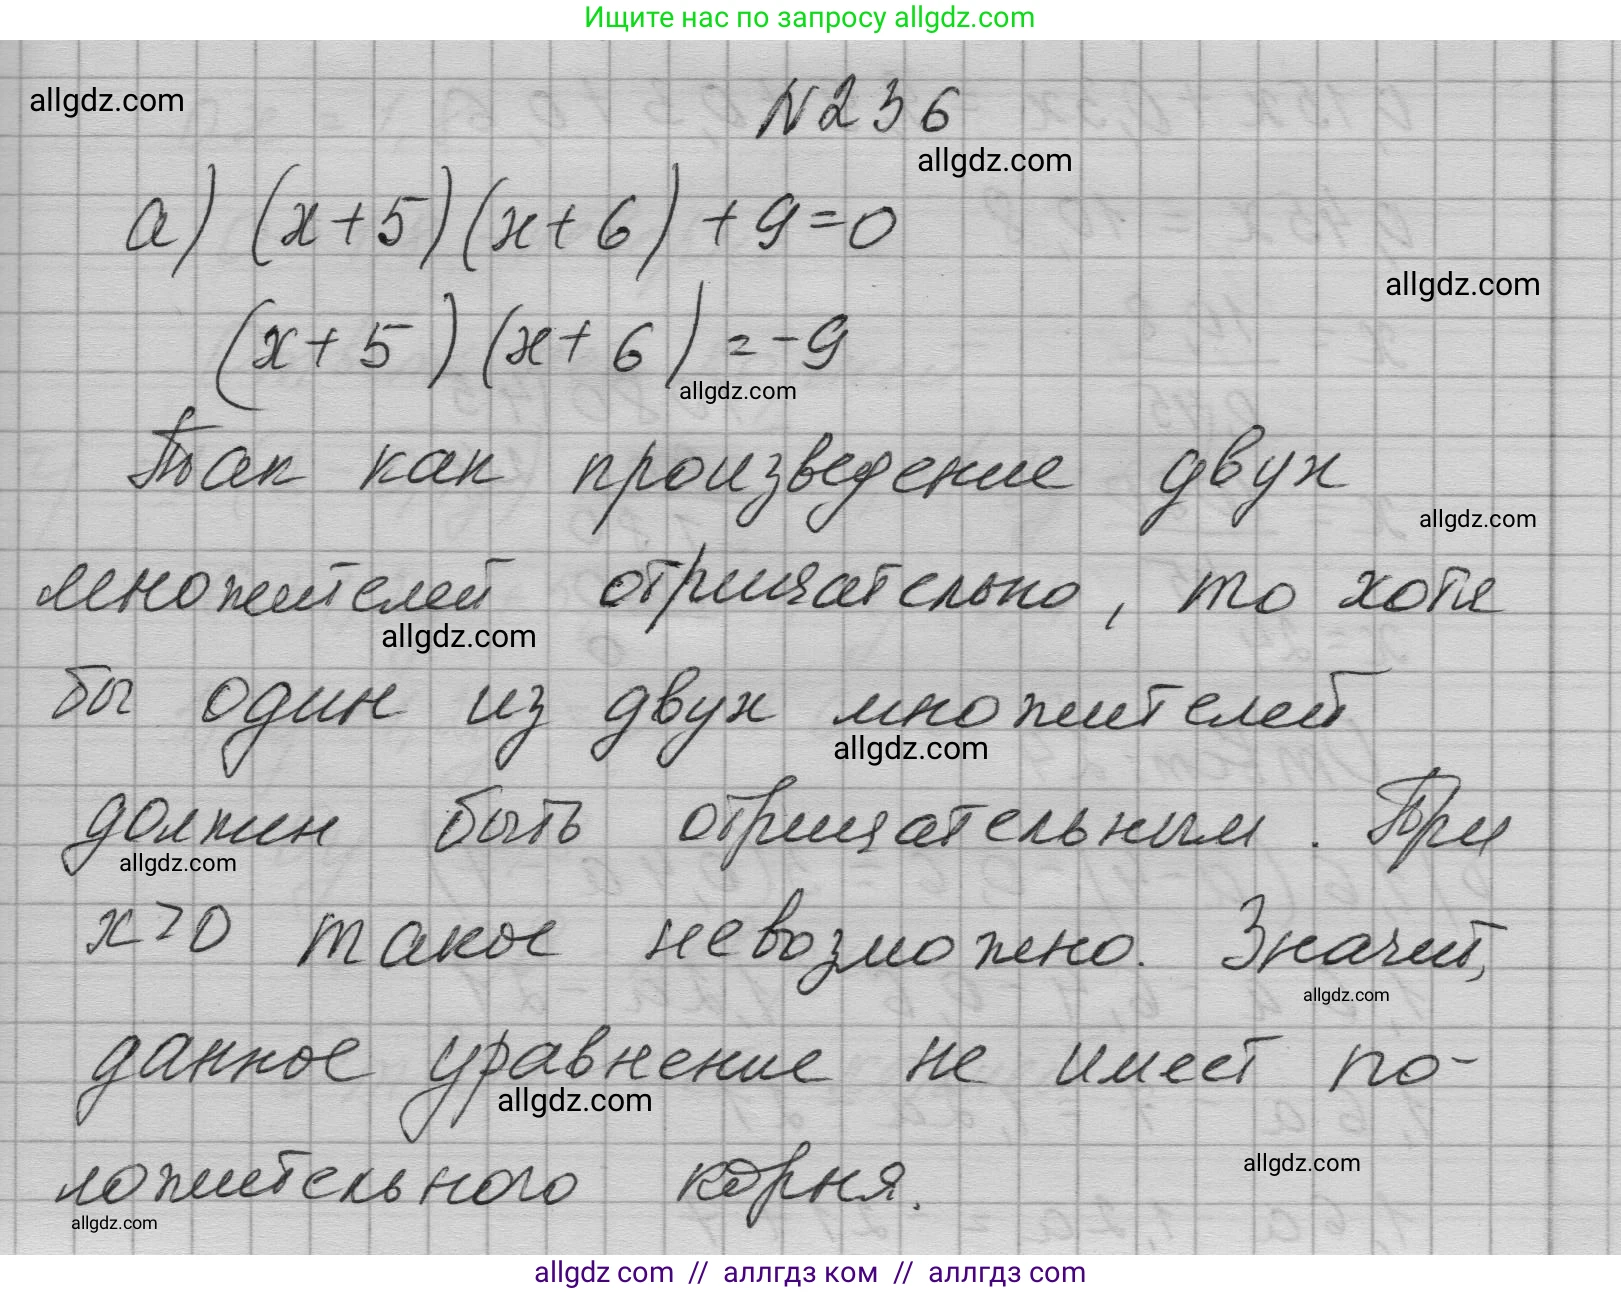 Ищите нас по запросу allgdz.com
allgdz.com
N236
allgdz.com
а) (x+5)(x+6)+9=0
allgdz.com
(x+5)(x+6)=-9
allgdz.com
Так как произведение двух
allgdz.com
множителей отрицательно, то хотя
allgdz.com
бы один из двух множителей
allgdz.com
должен быть отрицательным. При
allgdz.com
x>0 такое невозможно. Значит,
allgdz.com
данное уравнение не имеет по-
allgdz.com
ложительного корня.
allgdz.com
allgdz.com
allgdz com // аллгдз ком // аллгдз com